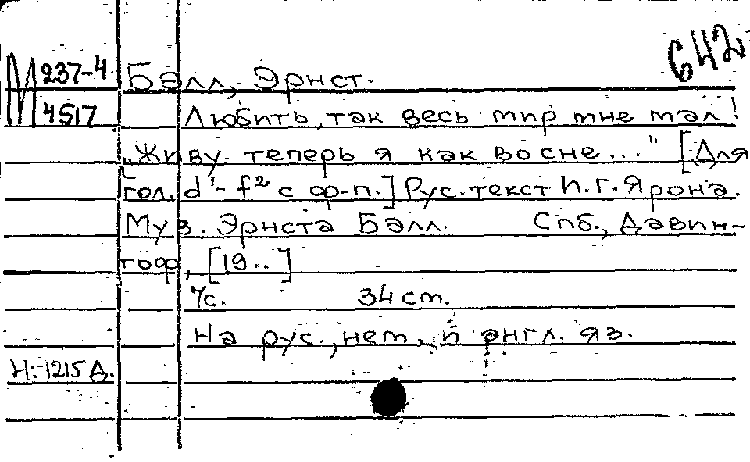 642
М 237-4
4517
Бэлл, Эрнст.
Любить, так весь мир мне мал!
„Живу теперь я как во сне..." [Для
гол. d¹- f² с ф-п.] Рус. текст И. Г. Ярона.
Муз. Эрнста Бэлл. Спб., Давин-
гоф, [19..]
7с. 34 cm.
На рус., нем. и англ. яз.
Н: 1215 Д.